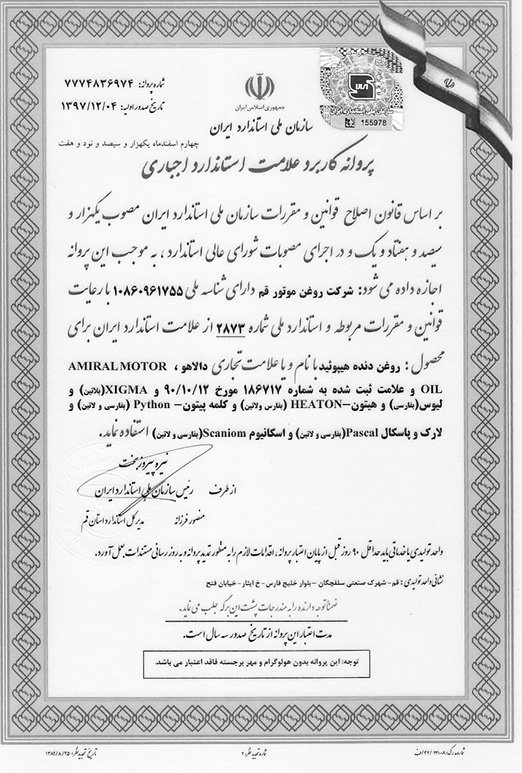 شماره پروانه: ۷۷۷۴۸۳۶۹۷۴
تاریخ صدور اولیه: ۱۳۹۷/۱۲/۰۴
جمهوری اسلامی ایران
155978
سازمان ملی استاندارد ایران
چهارم اسفندماه یکهزار و سیصد و نود و هفت
پروانه کاربرد علامت استاندارد اجباری
بر اساس قانون اصلاح قوانین و مقررات سازمان ملی استاندارد ایران مصوب یکهزار و
سیصد و هفتاد و یک و در اجرای مصوبات شورای عالی استاندارد، به موجب این پروانه
اجازه داده می شود: شرکت روغن موتور قم دارای شناسه ملی ۱۰۸۶۰۹۶۱۷۵۵ با رعایت
قوانین و مقررات مربوطه و استاندارد ملی شماره ۲۸۷۳ از علامت استاندارد ایران برای
محصول: روغن دنده هیپوئید با نام و یا علامت تجاری دالاهو ، AMIRAL MOTOR
OIL و علامت ثبت شده به شماره ۱۸۶۷۱۷ مورخ ۹۰/۱۰/۱۲ و XIGMA(بلاتین) و
لیوس(بفارسی) و هیتون-HEATON (بفارسی ولاتین) و کلمه پیتون- Python (بفارسی و لاتین) و
لارک و پاسکال Pascal(بفارسی و لاتین) و اسکانیوم Scaniom(بفارسی و لاتین) استفاده نماید.
نیره پیروزبخت
از طرف رئیس سازمان ملی استاندارد ایران
منصور فرزانه مدیرکل استاندارد استان قم
واحد تولیدی یا خدماتی باید حداقل ۹۰ روز قبل از پایان اعتبار پروانه، اقدامات لازم را به منظور تمدید پروانه و به روز رسانی مستندات بعمل آورد.
نشانی واحد تولیدی: قم- شهرک صنعتی سلفچگان- بلوار خلیج فارس- خ ایثار- خیابان فتح
ضمناً توجه دارنده را به مندرجات پشت این برگه جلب می نماید.
مدت اعتبار این پروانه از تاریخ صدور سه سال است.
توجه: این پروانه بدون هولوگرام و مهر برجسته فاقد اعتبار می باشد.